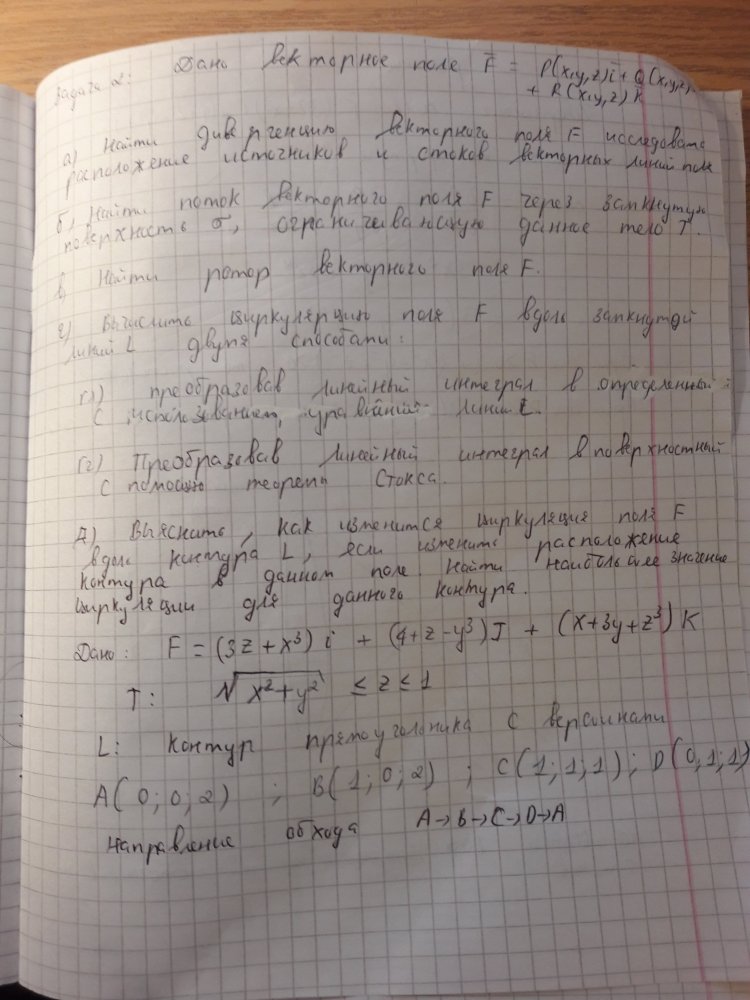 Задача 2: Дано векторное поле F̄ = P(x,y,z)i + Q(x,y,z)
+ R(x,y,z) k
а) Найти дивергенцию векторного поля F исследовать
расположение источников и стоков векторных линий поля
б) Найти поток векторного поля F через замкнутую
поверхность σ, ограничивающую данное тело T.
в) Найти ротор векторного поля F.
г) Вычислить циркуляцию поля F вдоль замкнутой
линий L двумя способами:
г1) преобразовав линейный интеграл в определенный
с использованием, уравнений линии L.
г2) Преобразовав линейный интеграл в поверхностный
с помощью теоремы Стокса.
Д) Выяснить, как изменится циркуляция поля F
вдоль контура L, если изменить расположение
контура в данном поле. Найти наибольшее значение
циркуляции для данного контура.
Дано: F = (3z + x³) i + (4+z-y³) J + (x+3y+z³) K
T: √x²+y² ≤ z ≤ 1
L: контур прямоугольника с вершинами
A(0;0;2) ; B(1;0;2) ; C(1;1;1); D(0;1;1)
направление обхода A→B→C→D→A